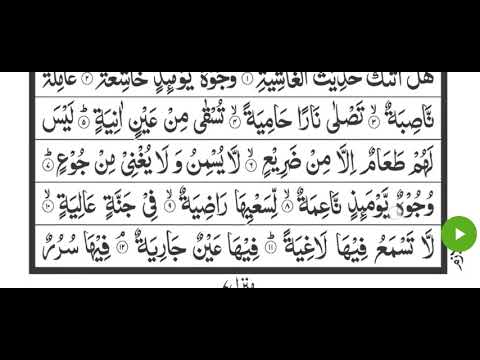 هَلْ اَتٰىكَ حَدِيْثُ الْغَاشِيَةِ ۙ﴿۱﴾ وُجُوْهٌ يَّوْمَىِٕذٍ خَاشِعَةٌ ۙ﴿۲﴾ عَامِلَةٌ
نَّاصِبَةٌ ۙ﴿۳﴾ تَصْلٰى نَارًا حَامِيَةً ۙ﴿۴﴾ تُسْقٰى مِنْ عَيْنٍ اٰنِيَةٍ ؕ﴿۵﴾ لَيْسَ
لَهُمْ طَعَامٌ اِلَّا مِنْ ضَرِيْعٍ ۙ﴿۶﴾ لَّا يُسْمِنُ وَ لَا يُغْنِيْ مِنْ جُوْعٍ ؕ﴿۷﴾
وُجُوْهٌ يَّوْمَىِٕذٍ نَّاعِمَةٌ ۙ﴿۸﴾ لِّسَعْيِهَا رَاضِيَةٌ ۙ﴿۹﴾ فِيْ جَنَّةٍ عَالِيَةٍ ۙ﴿۱۰﴾
لَّا تَسْمَعُ فِيْهَا لَاغِيَةً ؕ﴿۱۱﴾ فِيْهَا عَيْنٌ جَارِيَةٌ ۘ﴿۱۲﴾ فِيْهَا سُرُرٌ
منزل ۷